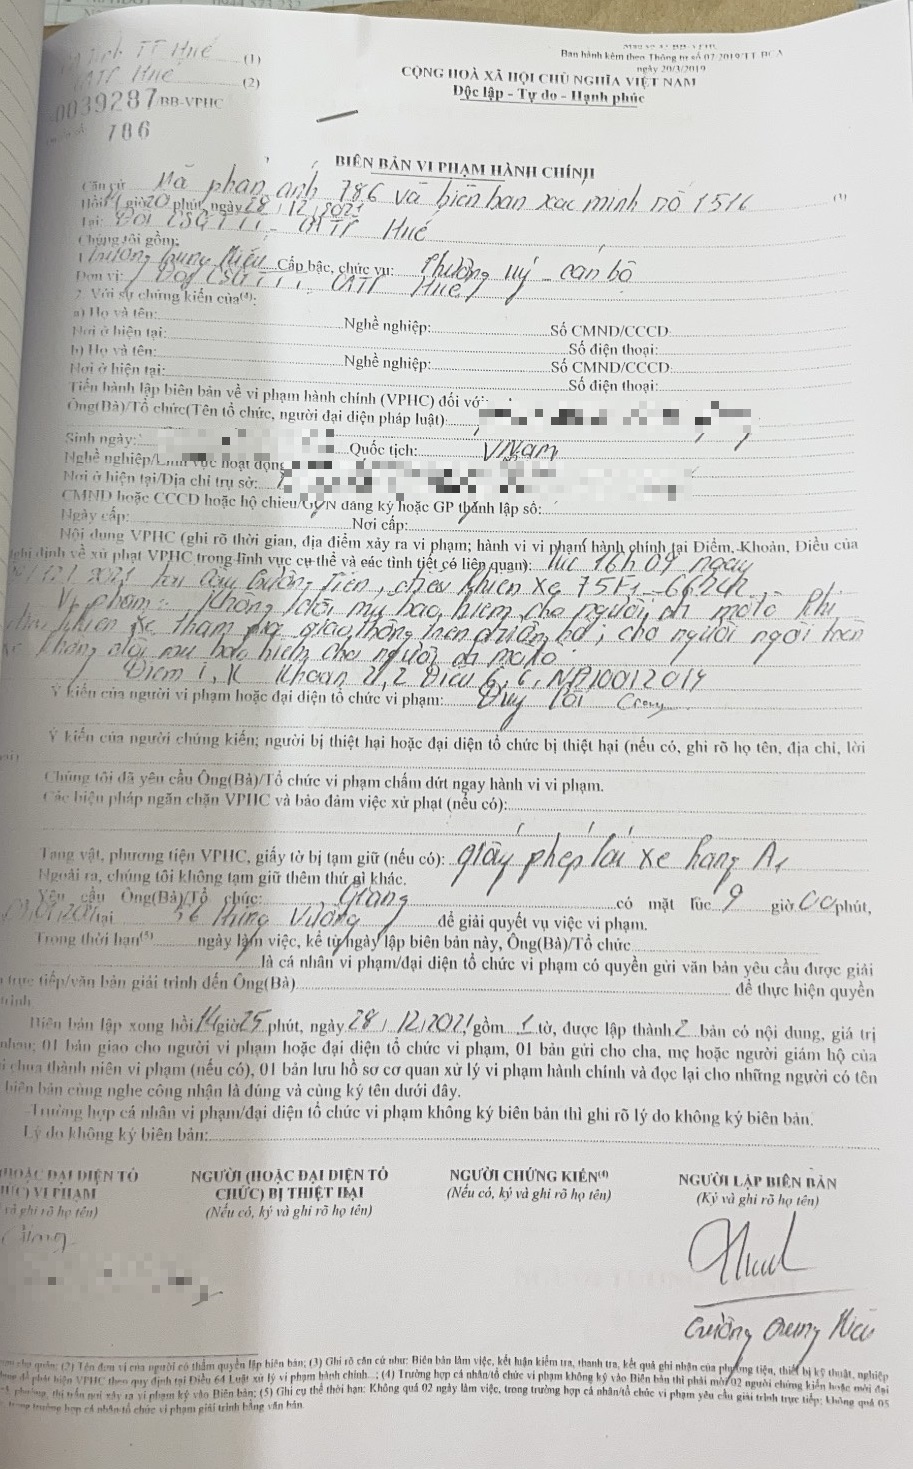 TT Huế (1)
CATP Huế (2)
0039287/BB-VPHC
786
Ban hành kèm theo Thông tư số 07/2019/TT-BCA
ngày 20/3/2019
CỘNG HOÀ XÃ HỘI CHỦ NGHĨA VIỆT NAM
Độc lập - Tự do - Hạnh phúc
BIÊN BẢN VI PHẠM HÀNH CHÍNH
Căn cứ Mã phản ánh 786 và biên bản xác minh số 1516 (3)
Hồi giờ 20 phút, ngày 28/12/2021
Tại: Đội CSGTTT - CATP Huế
Chúng tôi gồm:
1. Trương Trung Hiếu Cấp bậc, chức vụ: Thượng uý - cán bộ
Đơn vị: Đội CSGTTT, CATP Huế
2. Với sự chứng kiến của(4):
a) Họ và tên: Nghề nghiệp: Số CMND/CCCD
Nơi ở hiện tại: Số điện thoại:
b) Họ và tên: Nghề nghiệp: Số CMND/CCCD
Nơi ở hiện tại: Số điện thoại:
Tiến hành lập biên bản về vi phạm hành chính (VPHC) đối với:
Ông(Bà)/Tổ chức(Tên tổ chức, người đại diện pháp luật):
Sinh ngày: Quốc tịch: V.Nam
Nghề nghiệp/Lĩnh vực hoạt động
Nơi ở hiện tại/Địa chỉ trụ sở:
CMND hoặc CCCD hoặc hộ chiếu/GCN đăng ký hoặc GP thành lập số:
Ngày cấp: Nơi cấp:
Nội dung VPHC (ghi rõ thời gian, địa điểm xảy ra vi phạm; hành vi vi phạm hành chính tại Điểm, Khoản, Điều của
Nghị định về xử phạt VPHC trong lĩnh vực cụ thể và các tình tiết có liên quan): lúc 16h 04 ngày
12/2021 tại cầu Trường Tiền, điều khiển xe 75F1-
Vi phạm: Không đội mũ bảo hiểm cho người đi mô tô khi
điều khiển xe tham gia giao thông trên đường bộ; chở người ngồi trên
xe không đội mũ bảo hiểm cho người đi mô tô
Điểm i, K Khoản 2, 2 Điều 6, 6, NĐ100/2019
Ý kiến của người vi phạm hoặc đại diện tổ chức vi phạm:
Ý kiến của người chứng kiến; người bị thiệt hại hoặc đại diện tổ chức bị thiệt hại (nếu có, ghi rõ họ tên, địa chỉ, lời
Chúng tôi đã yêu cầu Ông(Bà)/Tổ chức vi phạm chấm dứt ngay hành vi vi phạm.
Các biện pháp ngăn chặn VPHC và bảo đảm việc xử phạt (nếu có):
Tang vật, phương tiện VPHC, giấy tờ bị tạm giữ (nếu có): giấy phép lái xe hạng A1
Ngoài ra, chúng tôi không tạm giữ thêm thứ gì khác.
Yêu cầu Ông(Bà)/Tổ chức: Giang có mặt lúc 9 giờ 00 phút,
tại 56 Hùng Vương để giải quyết vụ việc vi phạm.
Trong thời hạn(5) ngày làm việc, kể từ ngày lập biên bản này, Ông(Bà)/Tổ chức
là cá nhân vi phạm/đại diện tổ chức vi phạm có quyền gửi văn bản yêu cầu được giải
trực tiếp/văn bản giải trình đến Ông(Bà) để thực hiện quyền
trình
Biên bản lập xong hồi 14 giờ 25 phút, ngày 28/12/2021 gồm 1 tờ, được lập thành 2 bản có nội dung, giá trị
nhau; 01 bản giao cho người vi phạm hoặc đại diện tổ chức vi phạm, 01 bản gửi cho cha, mẹ hoặc người giám hộ của
chưa thành niên vi phạm (nếu có), 01 bản lưu hồ sơ cơ quan xử lý vi phạm hành chính và đọc lại cho những người có tên
biên bản cùng nghe công nhận là đúng và cùng ký tên dưới đây.
Trường hợp cá nhân vi phạm/đại diện tổ chức vi phạm không ký biên bản thì ghi rõ lý do không ký biên bản.
Lý do không ký biên bản:
HOẶC ĐẠI DIỆN TỔ CHỨC) VI PHẠM
và ghi rõ họ tên)
Giang
NGƯỜI (HOẶC ĐẠI DIỆN TỔ
CHỨC) BỊ THIỆT HẠI
(Nếu có, ký và ghi rõ họ tên)
NGƯỜI CHỨNG KIẾN(4)
(Nếu có, ký và ghi rõ họ tên)
NGƯỜI LẬP BIÊN BẢN
(Ký và ghi rõ họ tên)
Trương Trung Hiếu
chủ quản; (2) Tên đơn vị của người có thẩm quyền lập biên bản; (3) Ghi rõ căn cứ như: Biên bản làm việc, kết luận kiểm tra, thanh tra, kết quả ghi nhận của phương tiện, thiết bị kỹ thuật, nghiệp
để phát hiện VPHC theo quy định tại Điều 64 Luật xử lý vi phạm hành chính...; (4) Trường hợp cá nhân/tổ chức vi phạm không ký vào Biên bản thì phải mời 02 người chứng kiến hoặc mời đại
phường, thị trấn nơi xảy ra vi phạm ký vào Biên bản; (5) Ghi cụ thể thời hạn: Không quá 02 ngày làm việc, trong trường hợp cá nhân/tổ chức vi phạm yêu cầu giải trình trực tiếp; không quá 05
trong trường hợp cá nhân/tổ chức vi phạm giải trình bằng văn bản